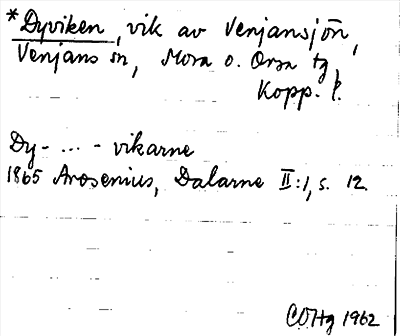 *Dyviken, vik av Venjansjön,
Venjans sn, Mora o. Orsa tg,
Kopp. l.
Dy- ... - vikarne
1865 Arosenius, Dalarne II:1, s. 12.
COHg 1962